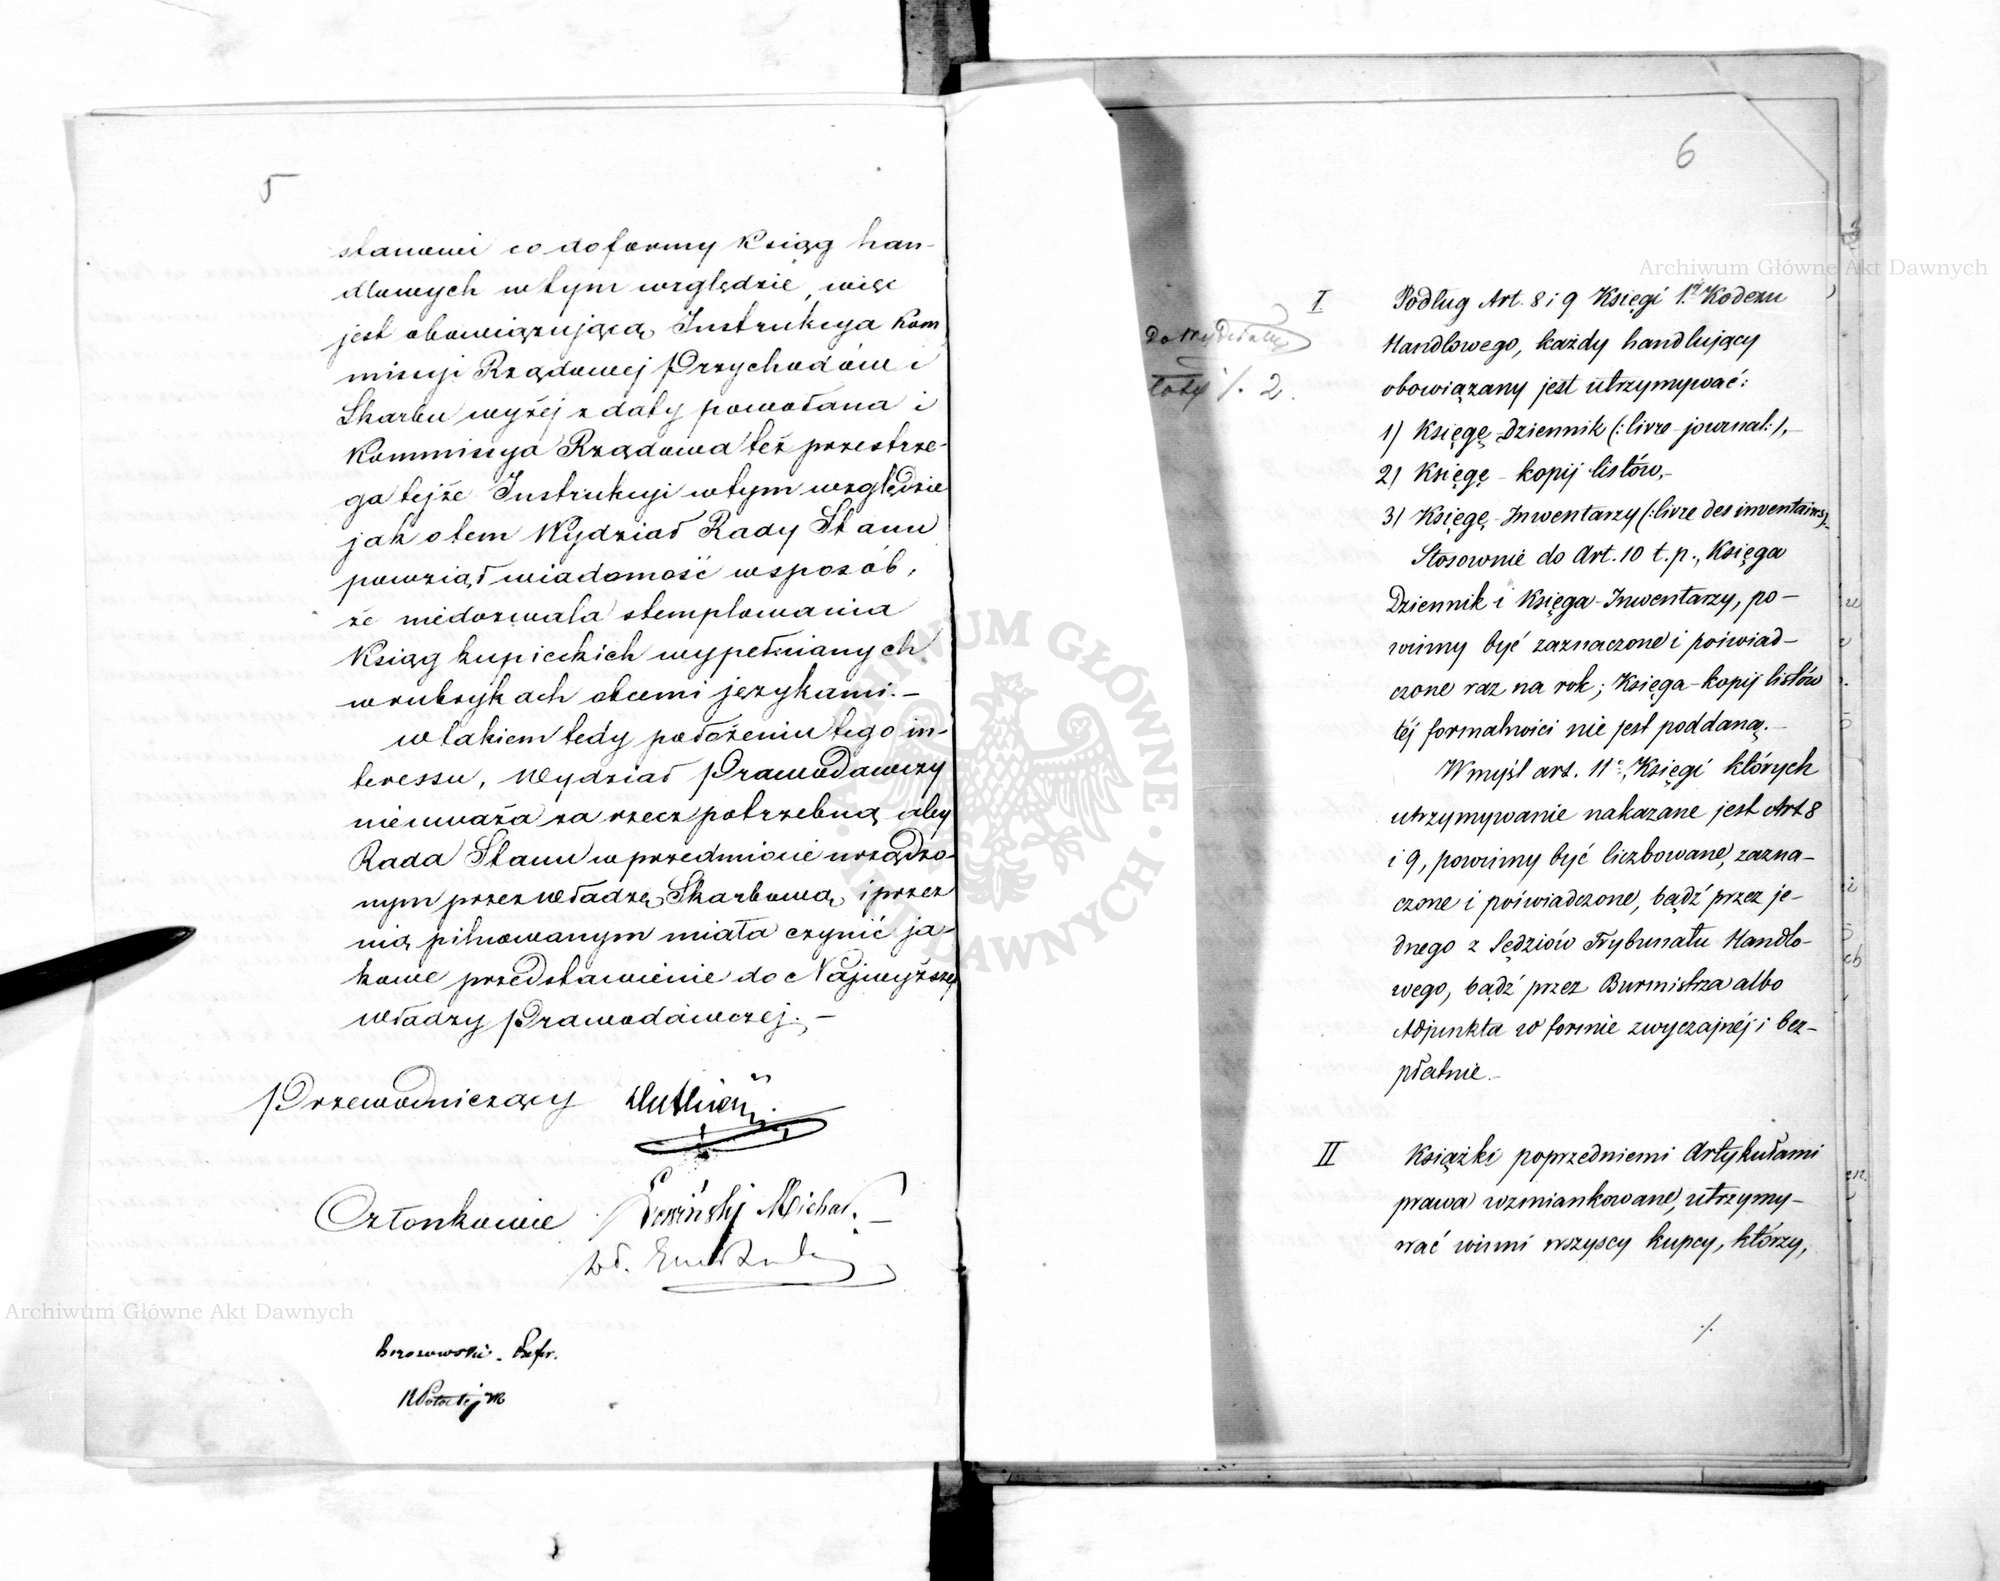 5
stanowi co do formy Ksiąg han-
dlowych w tym względzie, więc
jest obowiązującą Instrukcya Kom
missyi Rządowej Przychodów i
Skarbu wyżej z daty powołana i
Kommissya Rządowa też przestrze-
ga tejże Instrukcyi w tym względzie
jak o tem Wydział Rady Stanu
powziął wiadomość w sposób,
że niedozwala stemplowania
Ksiąg kupieckich wypełnianych
w rubrykach obcemi językami.-
W takiem tedy położeniu tego in-
teressu, Wydział Prawodawczy
nieuważa za rzecz potrzebną aby
Rada Stanu w przedmiocie urządzo-
nym przez Władzę Skarbową i przez
nią pilnowanym miała czynić ja-
kowe przedstawienie do Najwyższej
Władzy Prawodawczej.-
Przewodniczący
Członkowie Michał
Brzozowski. Refer.
6
I Podług Art. 8 i 9 Księgi 1éj Kodexu
Handlowego, każdy handlujący
obowiązany jest utrzymywać:
1) Księgę Dziennik (: livre-journal:),-
2) Księgę - kopij listów,-
3) Księgę-Inwentarzy (: livre des inventaires:).
Stosownie do Art. 10 t. p., Księga
Dziennik i Księga-Inwentarzy, po-
winny być zaznaczone i poświad-
czone raz na rok; Księga-kopij listów
téj formalności nie jest poddaną.-
W myśl art. 11º, Księgi których
utrzymywanie nakazane jest Art 8
i 9, powinny być liczbowane, zazna-
czone i poświadczone, bądź przez je-
dnego z Sędziów Trybunału Handlo-
wego, bądź przez Burmistrza albo
Adjunkta w formie zwyczajnéj i bez-
płatnie.-
II Książki poprzedniemi Artykułami
prawa wzmiankowane, utrzymy-
wać winni wszyscy kupcy, którzy,
./.
Archiwum Główne Akt Dawnych
Archiwum Główne Akt Dawnych
ARCHIWUM GŁÓWNE AKT DAWNYCH